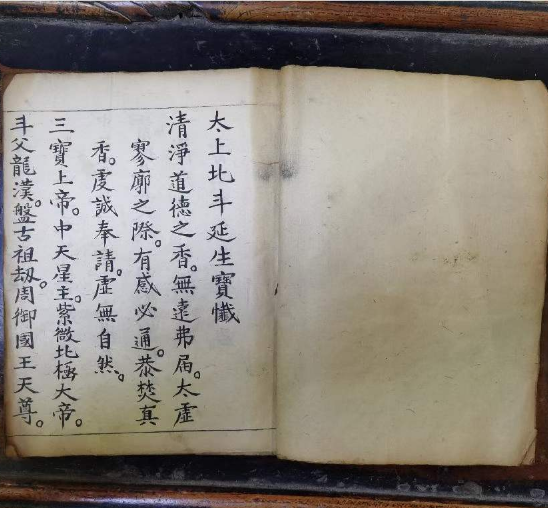 太上北斗延生寶懺
清淨道德之香。無遠弗屆。太虛
寥廓之際。有感必通。恭焚真
香。虔誠奉請。虛無自然。
三寶上帝。中天星主。紫微北極大帝。
斗父龍漢。盤古祖劫。周御國王天尊。